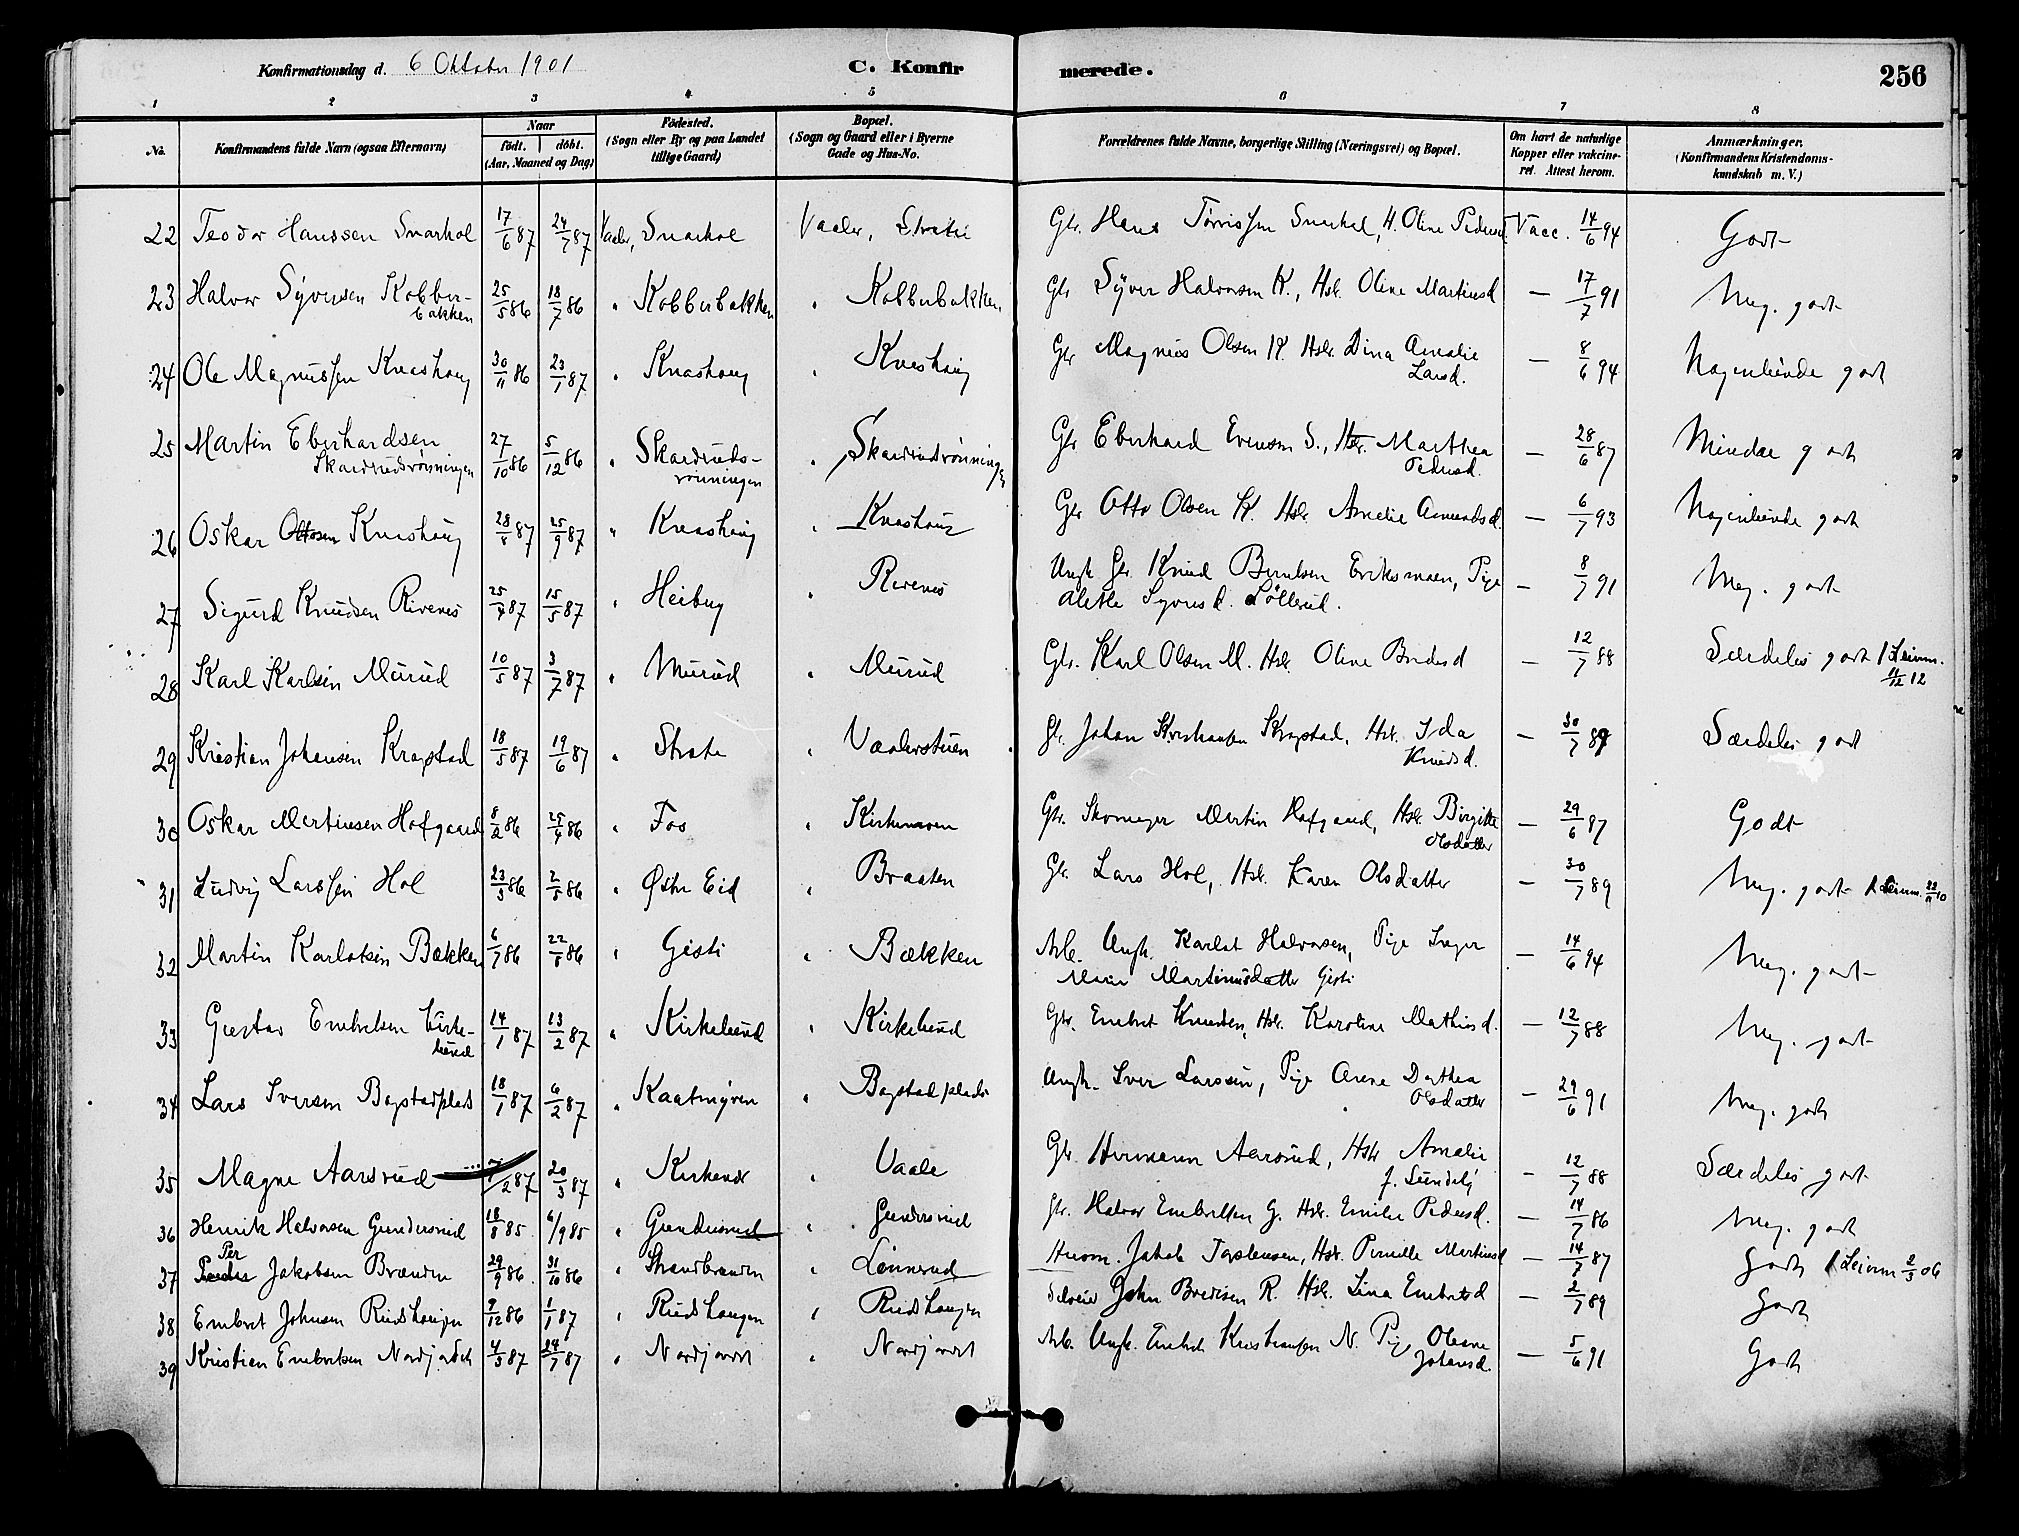 Konfirmationsdag d. 6 Oktober 1901 C. Konfirmerede. 256
1 2 3 4 5 6 7 8
No. Konfirmandens fulde Navn (ogsaa Efternavn) Naar født. døbt. (Aar, Maaned og Dag) Fødested. (Sogn eller By og paa Landet tillige Gaard) Bopæl. (Sogn og Gaard eller i Byerne Gade og Hus-No. Forældrenes fulde Navne, borgerlige Stilling (Næringsvei) og Bopæl. Om havt de naturlige Kopper eller vakcineret. Attest herom. Anmærkninger. (Konfirmandens Kristendomskundskab m. V.)
22 Teodor Hanssen Snarhol 17/6 87 24/7 87 Vaaler, Snarhol Vaaler, Gbr. Hans Snarhol, H. Oline Pedersd. Vacc. 14/6 94 Godt
23 Halvor Syversen Kobberbakken 25/5 86 18/7 86 " Kobberbakken " Kobberbakken Gbr Syver Halvorsen K., Hst. Oline Martinsd — 17/7 91 Meg. godt
24 Ole Magnussen Knashoug 30/11 86 23/1 87 " Knashoug " Knashoug Gbr Magnus Olsen K. Hst. Dina Amalie Larsd. — 8/6 94 Nogenlunde godt
25 Martin Eberhardsen Skardrudsrønningen 27/10 86 5/12 86 " Skardrudsrønningen " Skardrudrønningen Gbr Eberhard Evensen S., Hst. Marthea Pedersd. — 28/6 87 Mindre godt
26 Oskar Ottosen Knashoug 28/8 87 25/9 87 " Knashoug " Knashoug Gbr Otto Olsen K. Hst. Amalie Amundsd. — 6/7 93 Nogenlunde godt
27 Sigurd Knudsen Revenes 25/4 87 15/5 87 " Heiberg " Revenes Ungk. Gbr. Knud Berntsen Eriksmoen, Pige Alette Syversd. Løllerud. — 8/7 91 Meg. godt
28 Karl Karlsen Murud 10/5 87 3/7 87 " Murud " Murud Gbr. Karl Olsen M. Hst. Oline — 12/7 88 Særdeles godt 11/12 12
29 Kristian Johansen Kragstad 18/5 87 19/6 87 " " Vaalerstuen Gbr. Johan Kristiansen Kragstad, Hst. Ida Knudsd. — 30/7 89 Særdeles godt
30 Oskar Martinsen Hofgaard 8/2 86 25/4 86 " Fos " Kirkemoen Gbr. Skomager Martin Hofgaard, Hst. Birgitte Olsdatter — 29/6 87 Godt
31 Ludvig Larssen Hol 23/3 86 2/5 86 " Østre Eid " Braaten Gbr. Lars Hol, Hst. Karen Olsdatter — 30/7 89 Meg. godt 22/11 10
32 Martin Karlotsen Bækken 6/7 86 22/8 86 " Gisti " Bækken Arb. Ungk. Karlot Halvorsen, Pige Inger Marie Martinusdatter Gisti — 14/6 94 Meg. godt
33 Gustav Embretsen Kirkelund 14/1 87 13/2 87 " Kirkelund " Kirkelund Gbr. Embret Knudsen, Hst. Karoline Mathisd. — 12/7 88 Meg. godt
34 Lars Iversen Bogstadplads 18/1 87 6/2 87 " Kaatmyren " Bogstadplads Ungk. Iver Larssen, Pige Arene Dorthea Olsdatter — 29/6 91 Meg. godt
35 Magne Aarsrud 7/2 87 20/3 87 " " Vaaler Gbr. Hermann Aarsrud, Hst. Amalie f. Lundeby — 12/7 88 Særdeles godt
36 Henrik Halvorsen Gundersrud 18/8 85 6/9 85 " Gundersrud " Gundersrud Gbr. Halvor Embretsen G. Hst. Emilie Pedersd. — 14/7 86 Meg. godt
37 Per Jakobsen Brænden 29/9 86 31/10 86 " Strandbrænden " Lønnerud Husm. Jakob Torstensen, Hst. Pernille Martinsd — 14/7 87 Godt 2/3 06
38 Embret Johnsen Rudshaugen 9/12 86 1/1 87 " Rudshaugen " Rudshaugen Selveier John Bredesen R. Hst. Lina Embretsd — 2/7 89 Godt
39 Kristian Embretsen Nordjordet 4/3 87 24/7 87 " Nordjordet " Nordjordet Arb. Ungk. Embret Kristiansen N. Pige Oleane Johansd. — 5/6 91 Godt